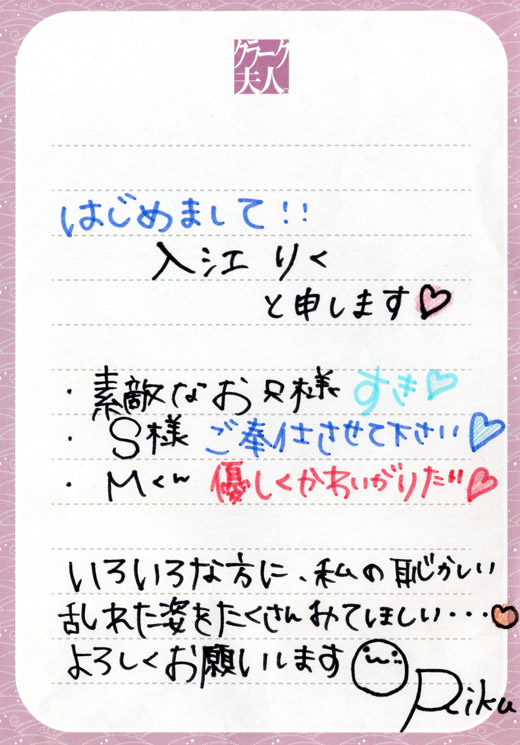 クラーク
夫人。
はじめまして!!
入江 りく
と申します♡
・素敵なお兄様 すき♡
・S様 ご奉仕させて下さい♡
・Mくん 優しくかわいがりた〃♡
いろいろな方に、私の恥かしい
乱れた姿をたくさんみてほしい・・・♡
よろしくお願いします
Riku